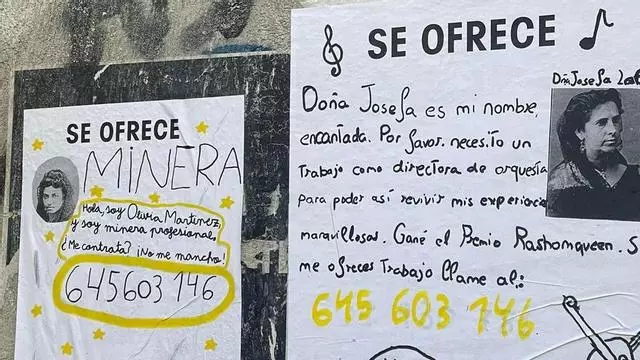 SE OFRECE
MINERA
Hola, soy Olivia Martínez,
y soy minera profesional.
¿Me contrata? ¡No me mancho!
645603 146
SE OFRECE
Doña Josefa
Doña Josefa es mi nombre,
encantada. Por favor. necesito un
Trabajo como directora de orquesta
para poder así revivir mis experiencia
maravillosas. Gané el Premio Rashomqueen. S
me ofreces Trabajo llame al:
645 603 146